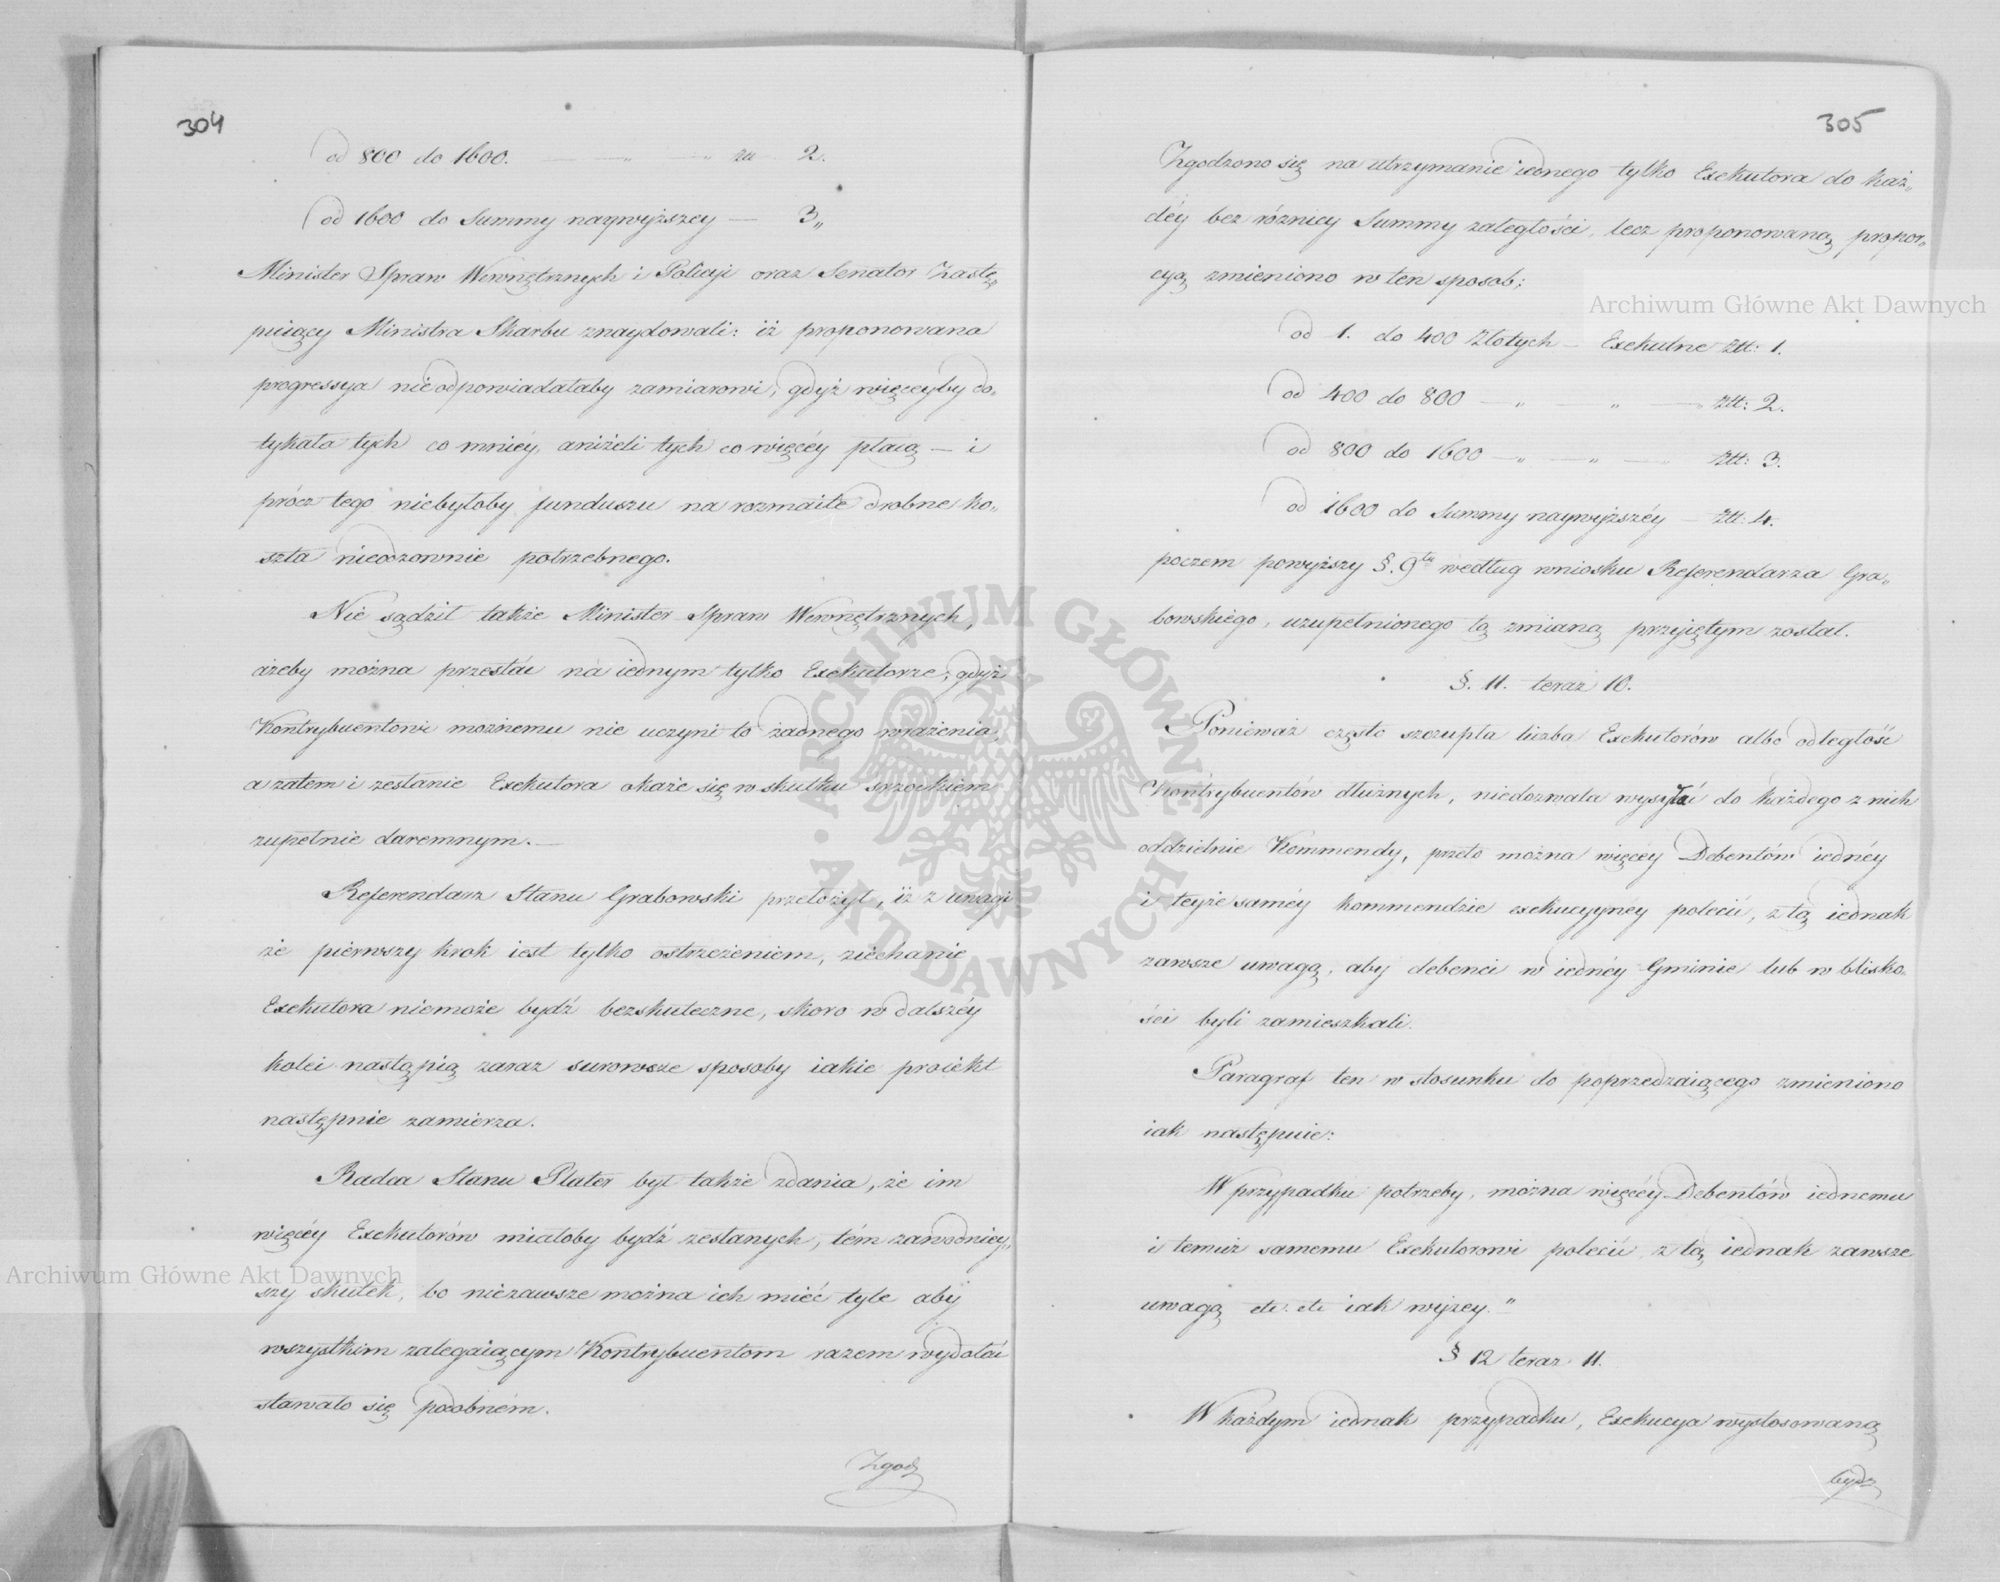 304
od 800 do 1600. — „ — „ zu 2.
od 1600 do Summy naywyższey — 3„
Minister Spraw Wewnętrznych i Policji oraz Senator Zastę„
puiący Ministra Skarbu znaydowali: iż proponowana
progressya nieodpowiadałaby zamiarowi, gdyż więceyby do„
tykała tych co mniéy, aniżeli tych co więcéy płacą — i
prócz tego niebyłoby funduszu na rozmaite drobne ko„
szta nieodzownie potrzebnego.
Nie sądził także Minister Spraw Wewnętrznych,
ażeby można przestać na iednym tylko Exekutorze, gdyż
Kontrybuentowi możnemu nie uczyni to żadnego wrażenia,
a zatem i zesłanie Exekutora okaże się w skutku srzodkiem
zupełnie daremnym. —
Referendarz Stanu Grabowski przełożył, iż z uwagi
że pierwszy krok iest tylko ostrzeżeniem, ziechanie
Exekutora niemoże bydź bezskuteczne, skoro w dalszéy
kolei nastąpią zaraz surowsze sposoby iakie proiekt
następnie zamierza.
Radca Stanu Plater był także zdania, że im
więcéy Exekutorów miałoby bydź zesłanych, tém zawodniey„
szy skutek, bo niezawsze można ich mieć tyle aby
wszystkim zalegaiącym Kontrybuentom razem wydołać
stawało się podobném.
Zgodz
305
Zgodzono się na utrzymanie iednego tylko Exekutora do każ„
déy bez różnicy Summy zaległości, lecz proponowaną propor„
cyą zmieniono w ten sposob;
od 1. do 400 Złotych — Exekutne Złł: 1.
od 400 do 800 — „ — „ — Złł: 2.
od 800 do 1600 — „ — „ — Złł: 3.
od 1600 do Summy naywyższéy — Złł: 4.
poczem powyższy §. 9ty według wniosku Referendarza Gra„
bowskiego, uzupełnionego tą zmianą przyiętym został.
§. 11. teraz 10.
Ponieważ często szczupła liczba Exekutorów albo odległość
Kontrybuentów dłużnych, niedozwala wysyłać do każdego z nich
oddzielnie Kommendy, przeto można więcéy Debentów iednéy
i teyże saméy kommendzie exekucyynéy polecić, z tą iednak
zawsze uwagą, aby debenci w iednéy Gminie lub w blisko„
ści byli zamieszkali.
Paragraf ten w stosunku do poprzedzaiącego zmieniono
iak następuie:
W przypadku potrzeby, można więcéy Debentów iednemu
i temuż samemu Exekutorowi polecić z tą iednak zawsze
uwagą etc. etc iak wyżey."
§ 12 teraz 11.
W każdym iednak przypadku, Exekucya wystosowaną
bydz
Archiwum Główne Akt Dawnych
Archiwum Główne Akt Dawnych
ARCHIWUM GŁÓWNE AKT DAWNYCH